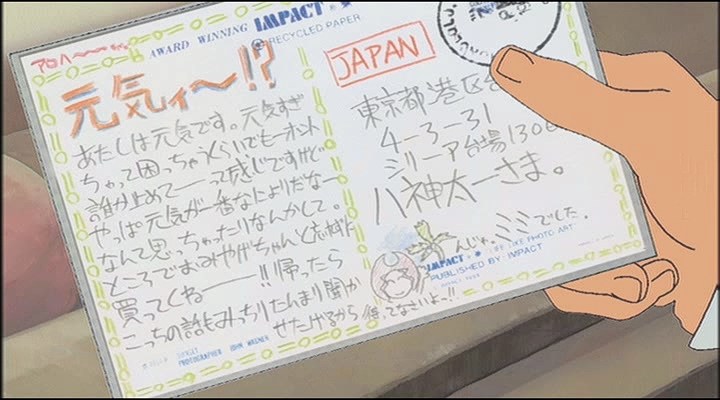 アロハ〜〜
AWARD WINNING IMPACT
RECYCLED PAPER
元気ィ〜!?
あたしは元気です。元気すぎ
ちゃって困っちゃうくらいでもーホント
誰か止めてー―って感じですけど
やっぱ元気が一番なによりだなー
なんて思っちゃったりなんかして。
ところでおみやげちゃんと忘れずに
買ってくね――!!帰ったら
こっちの話もみっちりたんまり聞か
せたげるから待ってなさいよっ!!
PHOTOGRAPHER JOHN WAGNER
JAPAN
東京都港区台
4-3-31
シリーア台場130
八神太一さま。
んじゃ、ミミでした。
IMPACT LIFE LIKE PHOTO ART
PUBLISHED BY: IMPACT